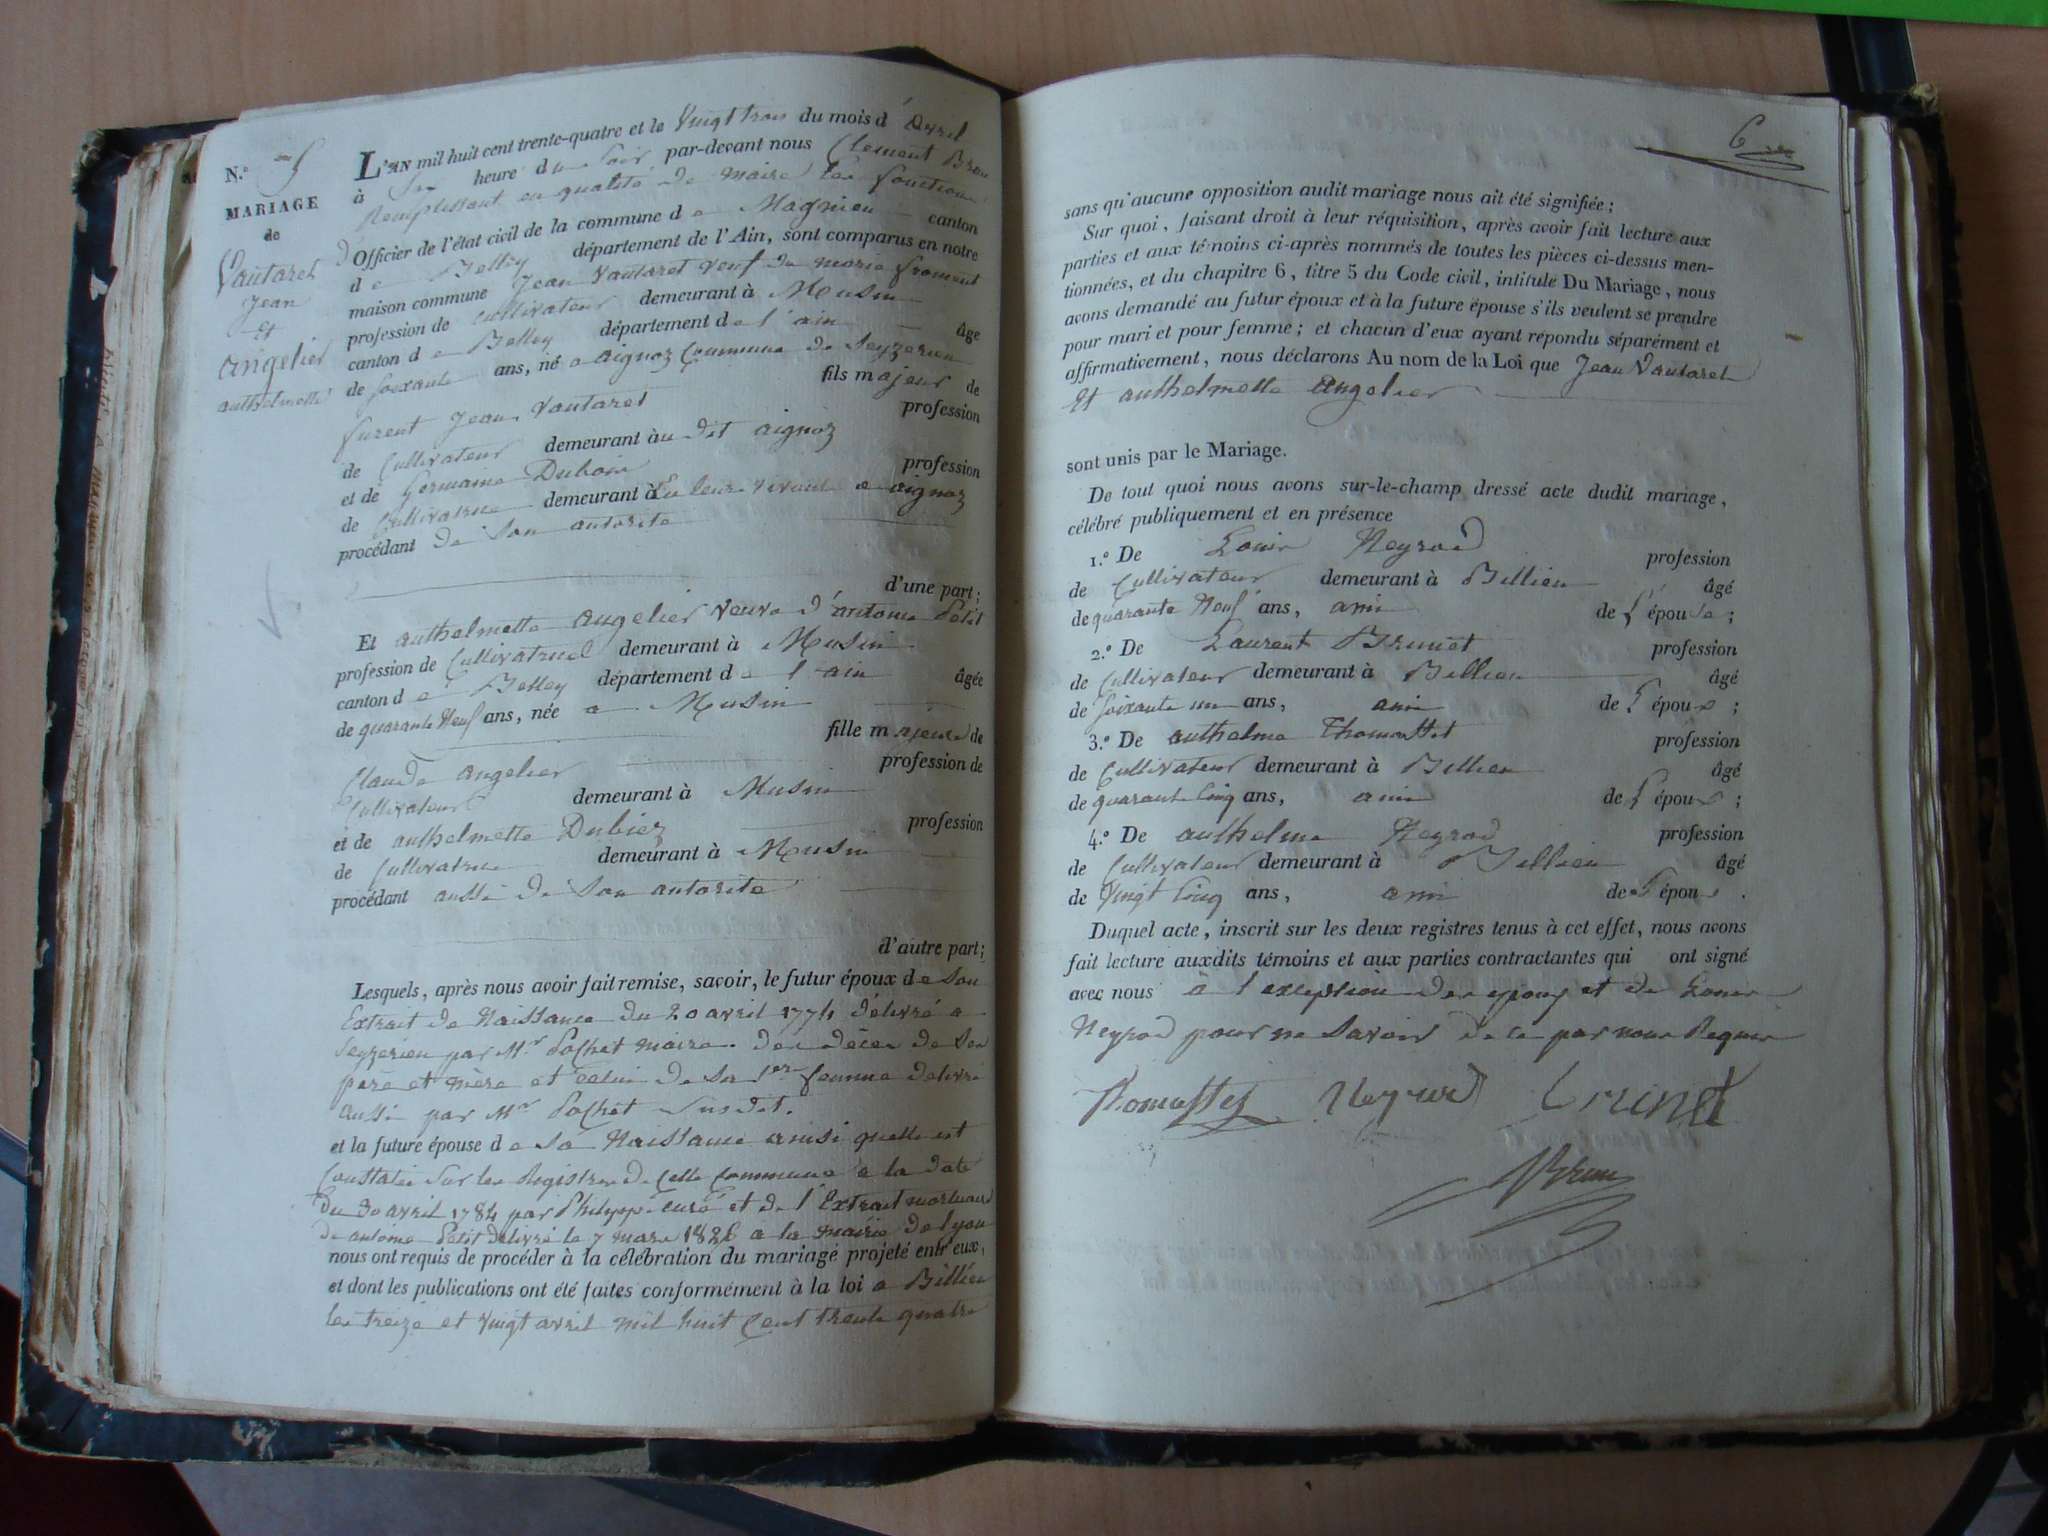 N.º 5
MARIAGE
de
Vautaret
Jean
Et
Angelier
anthelmette
L'AN mil huit cent trente-quatre et le Vingt trois du mois d'Avril
à Six heure du Soir par-devant nous Clement Brun
Remplissant en qualité de maire les fonctions
d'Officier de l'état civil de la commune de Magnieu canton
de Belley département de l'Ain, sont comparus en notre
maison commune Jean Vautaret veuf de marie froment
profession de cultivateur demeurant à Musin
canton de Belley département de l'ain âgé
de soixante ans, né a aignoz Commune de Seyzerieu
fils majeur de
furent Jean Vautaret profession
de Cultivateur demeurant au dit aignoz
et de Germaine Dubois profession
de Cultivatrice demeurant à En leur vivant a aignoz
procédant de Son autorité
d'une part;
Et anthelmette angelier veuve d'antoine Petit
profession de Cultivatrice demeurant à Musin
canton de Belley département de l'ain âgée
de quarante Neuf ans, née a Musin
fille majeure de
Claude angelier profession de
Cultivateur demeurant à Musin
et de anthelmette Dubiez profession
de Cultivatrice demeurant à Musin
procédant aussi de Son autorité
d'autre part;
Lesquels, après nous avoir fait remise, savoir, le futur époux de Son
Extrait de Naissance du 20 avril 1774 délivré a
Seyzerieu par Mr Pochet maire. des décès de Ses
père et mère et celui de Sa 1ere femme delivré
aussi par Mr Pochet Susdit.
et la future épouse de Sa Naissance ainsi quelle est
Constatée Sur les Registres de Cette Commune a la date
du 30 avril 1784 par Philippe curé et de l'Extrait mortuaire
de antoine Petit délivré le 7 mars 1826 a la mairie de lyon
nous ont requis de procéder à la célébration du mariage projeté entr'eux,
et dont les publications ont été faites conformément à la loi a Billieu
les treize et vingt avril mil huit Cent trente quatre
6
sans qu'aucune opposition audit mariage nous ait été signifiée;
Sur quoi, faisant droit à leur réquisition, après avoir fait lecture aux
parties et aux témoins ci-après nommés de toutes les pièces ci-dessus men-
tionnées, et du chapitre 6, titre 5 du Code civil, intitulé Du Mariage, nous
avons demandé au futur époux et à la future épouse s'ils veulent se prendre
pour mari et pour femme; et chacun d'eux ayant répondu séparément et
affirmativement, nous déclarons Au nom de la Loi que Jean Vautaret
Et anthelmette angelier
sont unis par le Mariage.
De tout quoi nous avons sur-le-champ dressé acte dudit mariage,
célébré publiquement et en présence
1.º De Louis Neyrod profession
de Cultivateur demeurant à Billieu âgé
de quarante Neuf ans, ami de L'épouse;
2.º De Laurent Brunet profession
de Cultivateur demeurant à Billieu âgé
de soixante un ans, ami de L'époux;
3.º De anthelme Thomasset profession
de Cultivateur demeurant à Billieu âgé
de quarante Cinq ans, ami de L'époux;
4.º De anthelme Neyrod profession
de Cultivateur demeurant à Billieu âgé
de Vingt Cinq ans, ami de L'époux.
Duquel acte, inscrit sur les deux registres tenus à cet effet, nous avons
fait lecture auxdits témoins et aux parties contractantes qui ont signé
avec nous à l'exception des epoux et de Louis
Neyrod pour ne Savoir de ce par nous Requis
Thomasset Neyrod Brunet
Brun